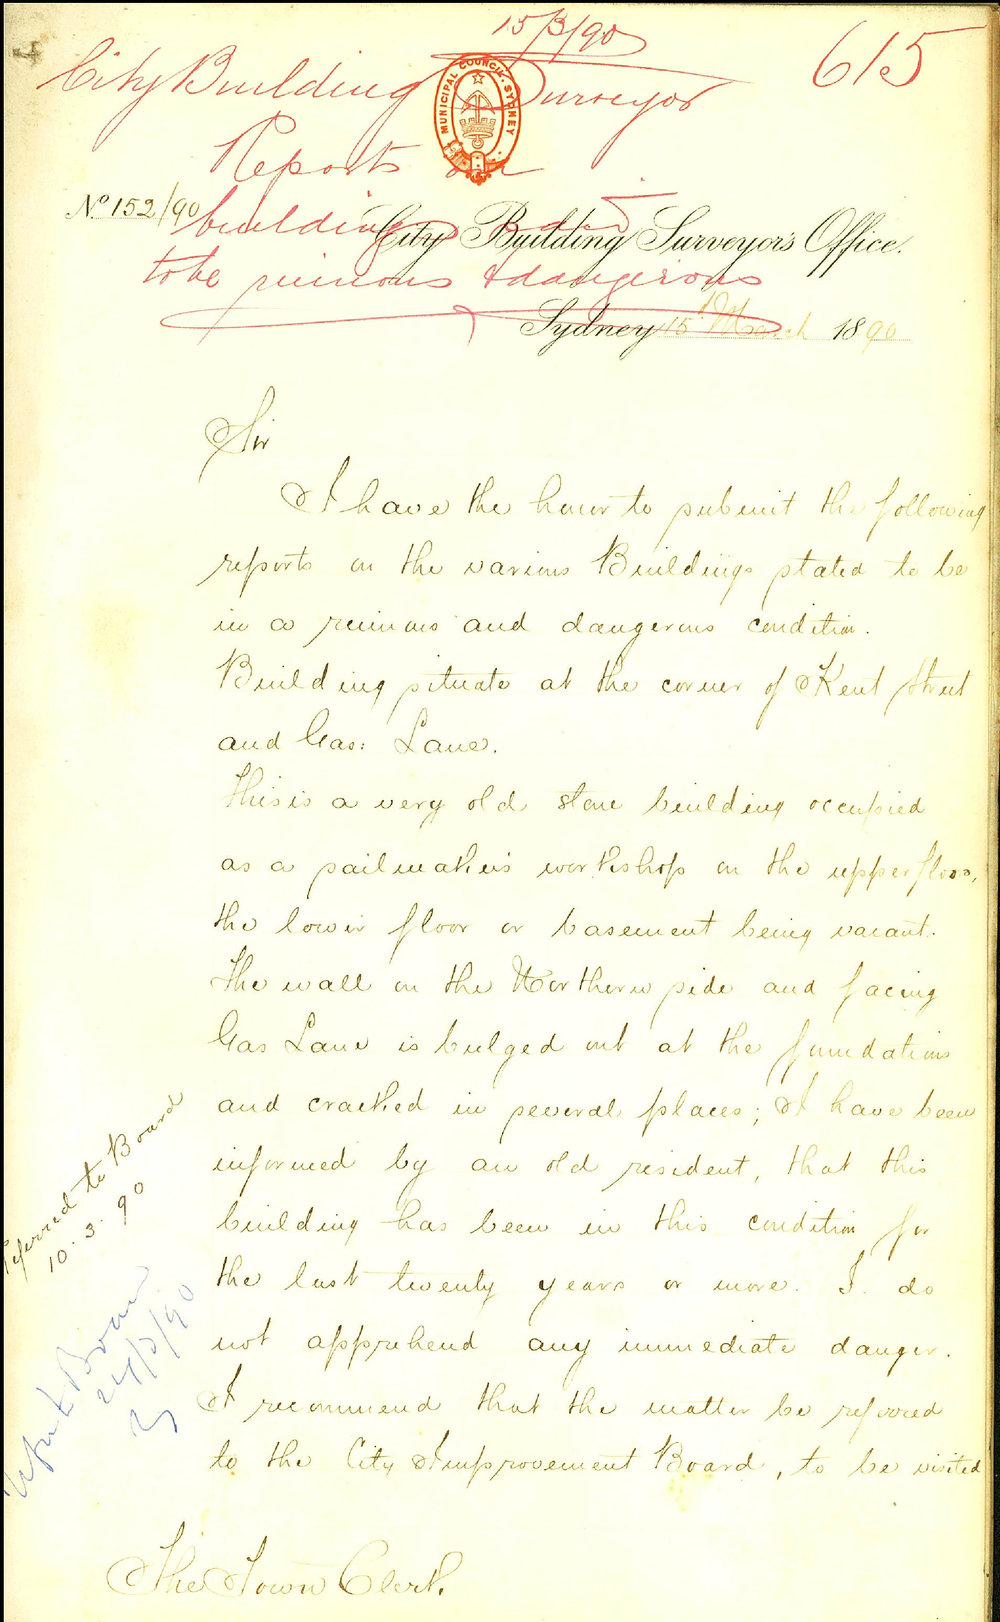 15/3/90
615
City Building Surveyor
MUNICIPAL COUNCIL. SYDNEY
Reports on
No 152/90
buildings said
City Building Surveyor's Office.
to be ruinous & dangerous
Sydney 15 March 1890
Sir
I have the honor to submit the following
reports on the various Buildings stated to be
in a ruinous and dangerous condition.
Building situate at the corner of Kent Street
and Gas: Lane.
This is a very old stone building occupied
as a sailmaker's workshop on the upper floor,
the lower floor or basement being vacant.
The wall on the Northern side and facing
Gas Lane is bulged out at the foundations
and cracked in several places; I have been
informed by an old resident, that this
building has been in this condition for
the last twenty years or more. I do
not apprehend any immediate danger.
I recommend that the matter be referred
to the City Improvement Board, to be visited
The Town Clerk.
referred to Board
10.3.90
Board